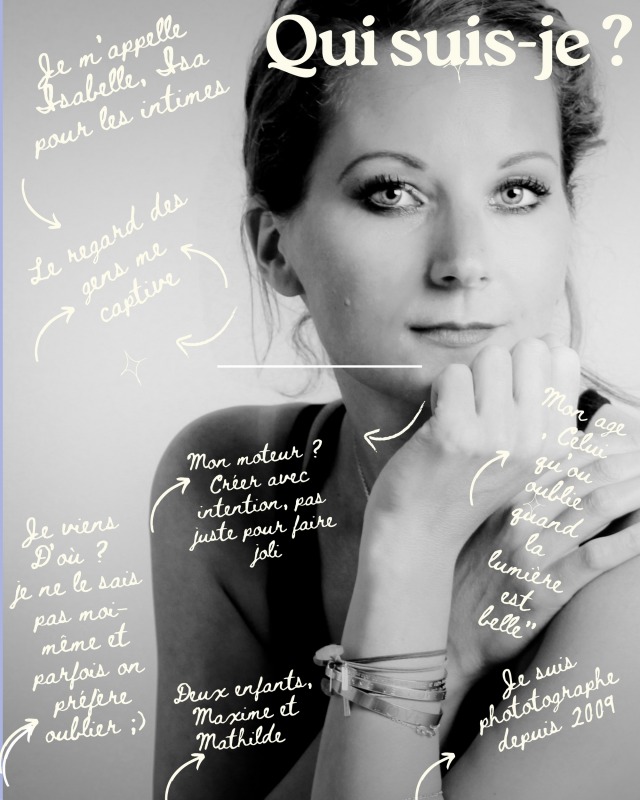 Qui suis-je ?
Je m'appelle
Isabelle, Isa
pour les intimes
Le regard des
gens me
captive
Mon moteur ?
Créer avec
intention, pas
juste pour faire
joli
Mon age
, Celui
qu'ou
oublie
quand
la
lumière
est
belle"
Je viens
D'où ?
je ne le sais
pas moi-
même et
parfois on
préfère
oublier ;)
Deux enfants,
Maxime et
Mathilde
Je suis
phototographe
depuis 2009